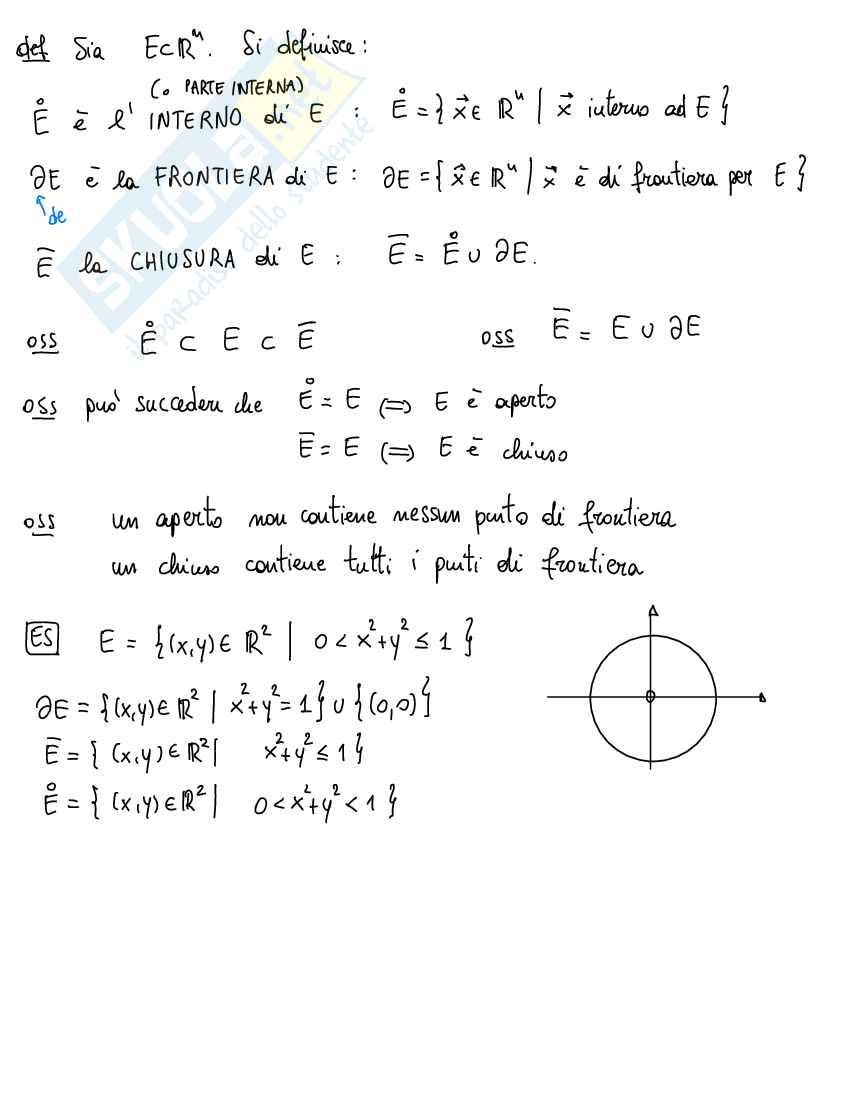 def Sia E⊂ℝⁿ. Si definisce:
(o PARTE INTERNA)
E̊ è l' INTERNO di E : E̊ = { x⃗ ∈ ℝⁿ | x⃗ interno ad E }
∂E è la FRONTIERA di E : ∂E = { x⃗ ∈ ℝⁿ | x⃗ è di frontiera per E }
de
E̅ la CHIUSURA di E : E̅ = E̊ ∪ ∂E.
oss E̊ ⊂ E ⊂ E̅ oss E̅ = E ∪ ∂E
oss può succedere che E̊ = E ⟺ E è aperto
E̅ = E ⟺ E è chiuso
oss un aperto non contiene nessun punto di frontiera
un chiuso contiene tutti i punti di frontiera
ES E = {(x,y) ∈ ℝ² | 0 < x²+y² ≤ 1 }
∂E = {(x,y) ∈ ℝ² | x²+y² = 1} ∪ {(0,0)}
E̅ = { (x,y) ∈ ℝ² | x²+y² ≤ 1 }
E̊ = { (x,y) ∈ ℝ² | 0 < x²+y² < 1 }
SKUOLA.net
il paradiso dello studente